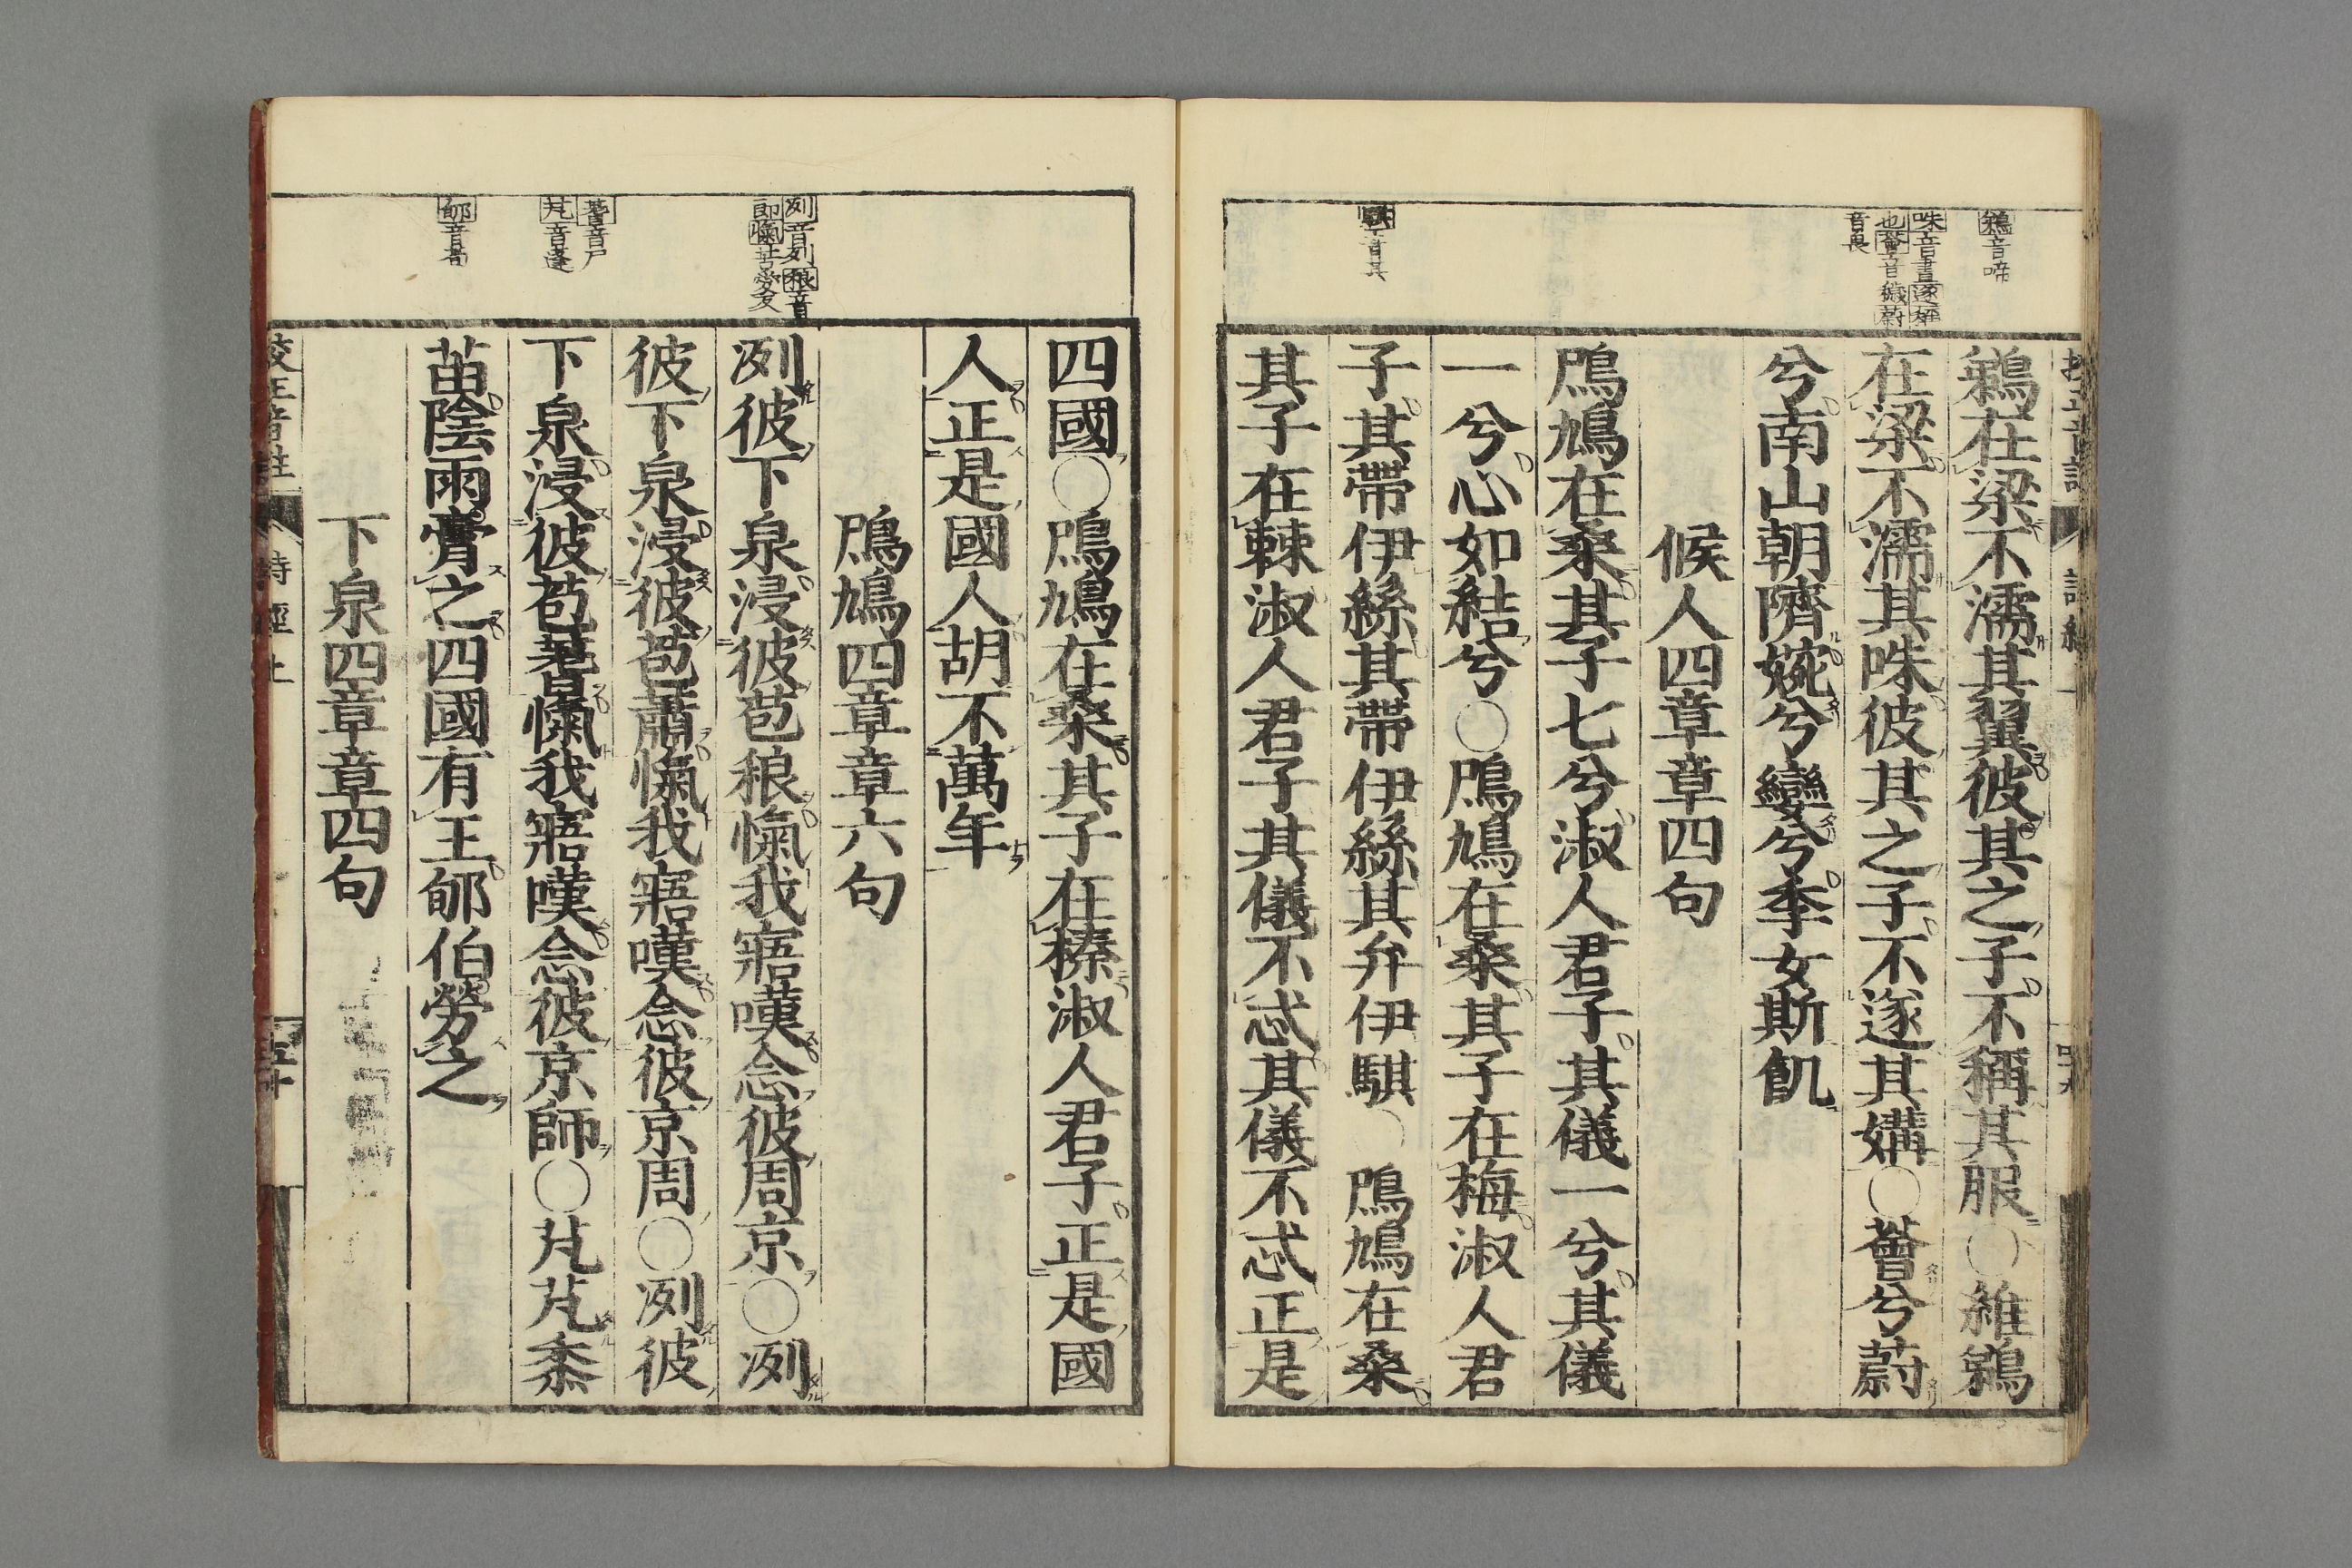 鵜音啼
咮音晝遂姻
也薈音穢蔚
音畏
騏音其
鵜在梁不濡其翼彼其之子不稱其服〇維鵜
在梁不濡其咮彼其之子不遂其媾〇薈兮蔚
兮南山朝隮婉兮孌兮季女斯飢
候人四章章四句
鳲鳩在桑其子七兮淑人君子其儀一兮其儀
一兮心如結兮〇鳲鳩在桑其子在梅淑人君
子其帶伊絲其帶伊絲其弁伊騏〇鳲鳩在桑
其子在棘淑人君子其儀不忒其儀不忒正是
冽音列稂音
郎愾苦愛反
蓍音尸
芃音蓬
郇音荀
四國〇鳲鳩在桑其子在榛淑人君子正是國
人正是國人胡不萬年
鳲鳩四章章六句
冽彼下泉浸彼苞稂愾我寤嘆念彼周京〇冽
彼下泉浸彼苞蕭愾我寤嘆念彼京周〇冽彼
下泉浸彼苞蓍愾我寤嘆念彼京師〇芃芃黍
苗陰雨膏之四國有王郇伯勞之
下泉四章章四句
校正音註 詩經上 五十